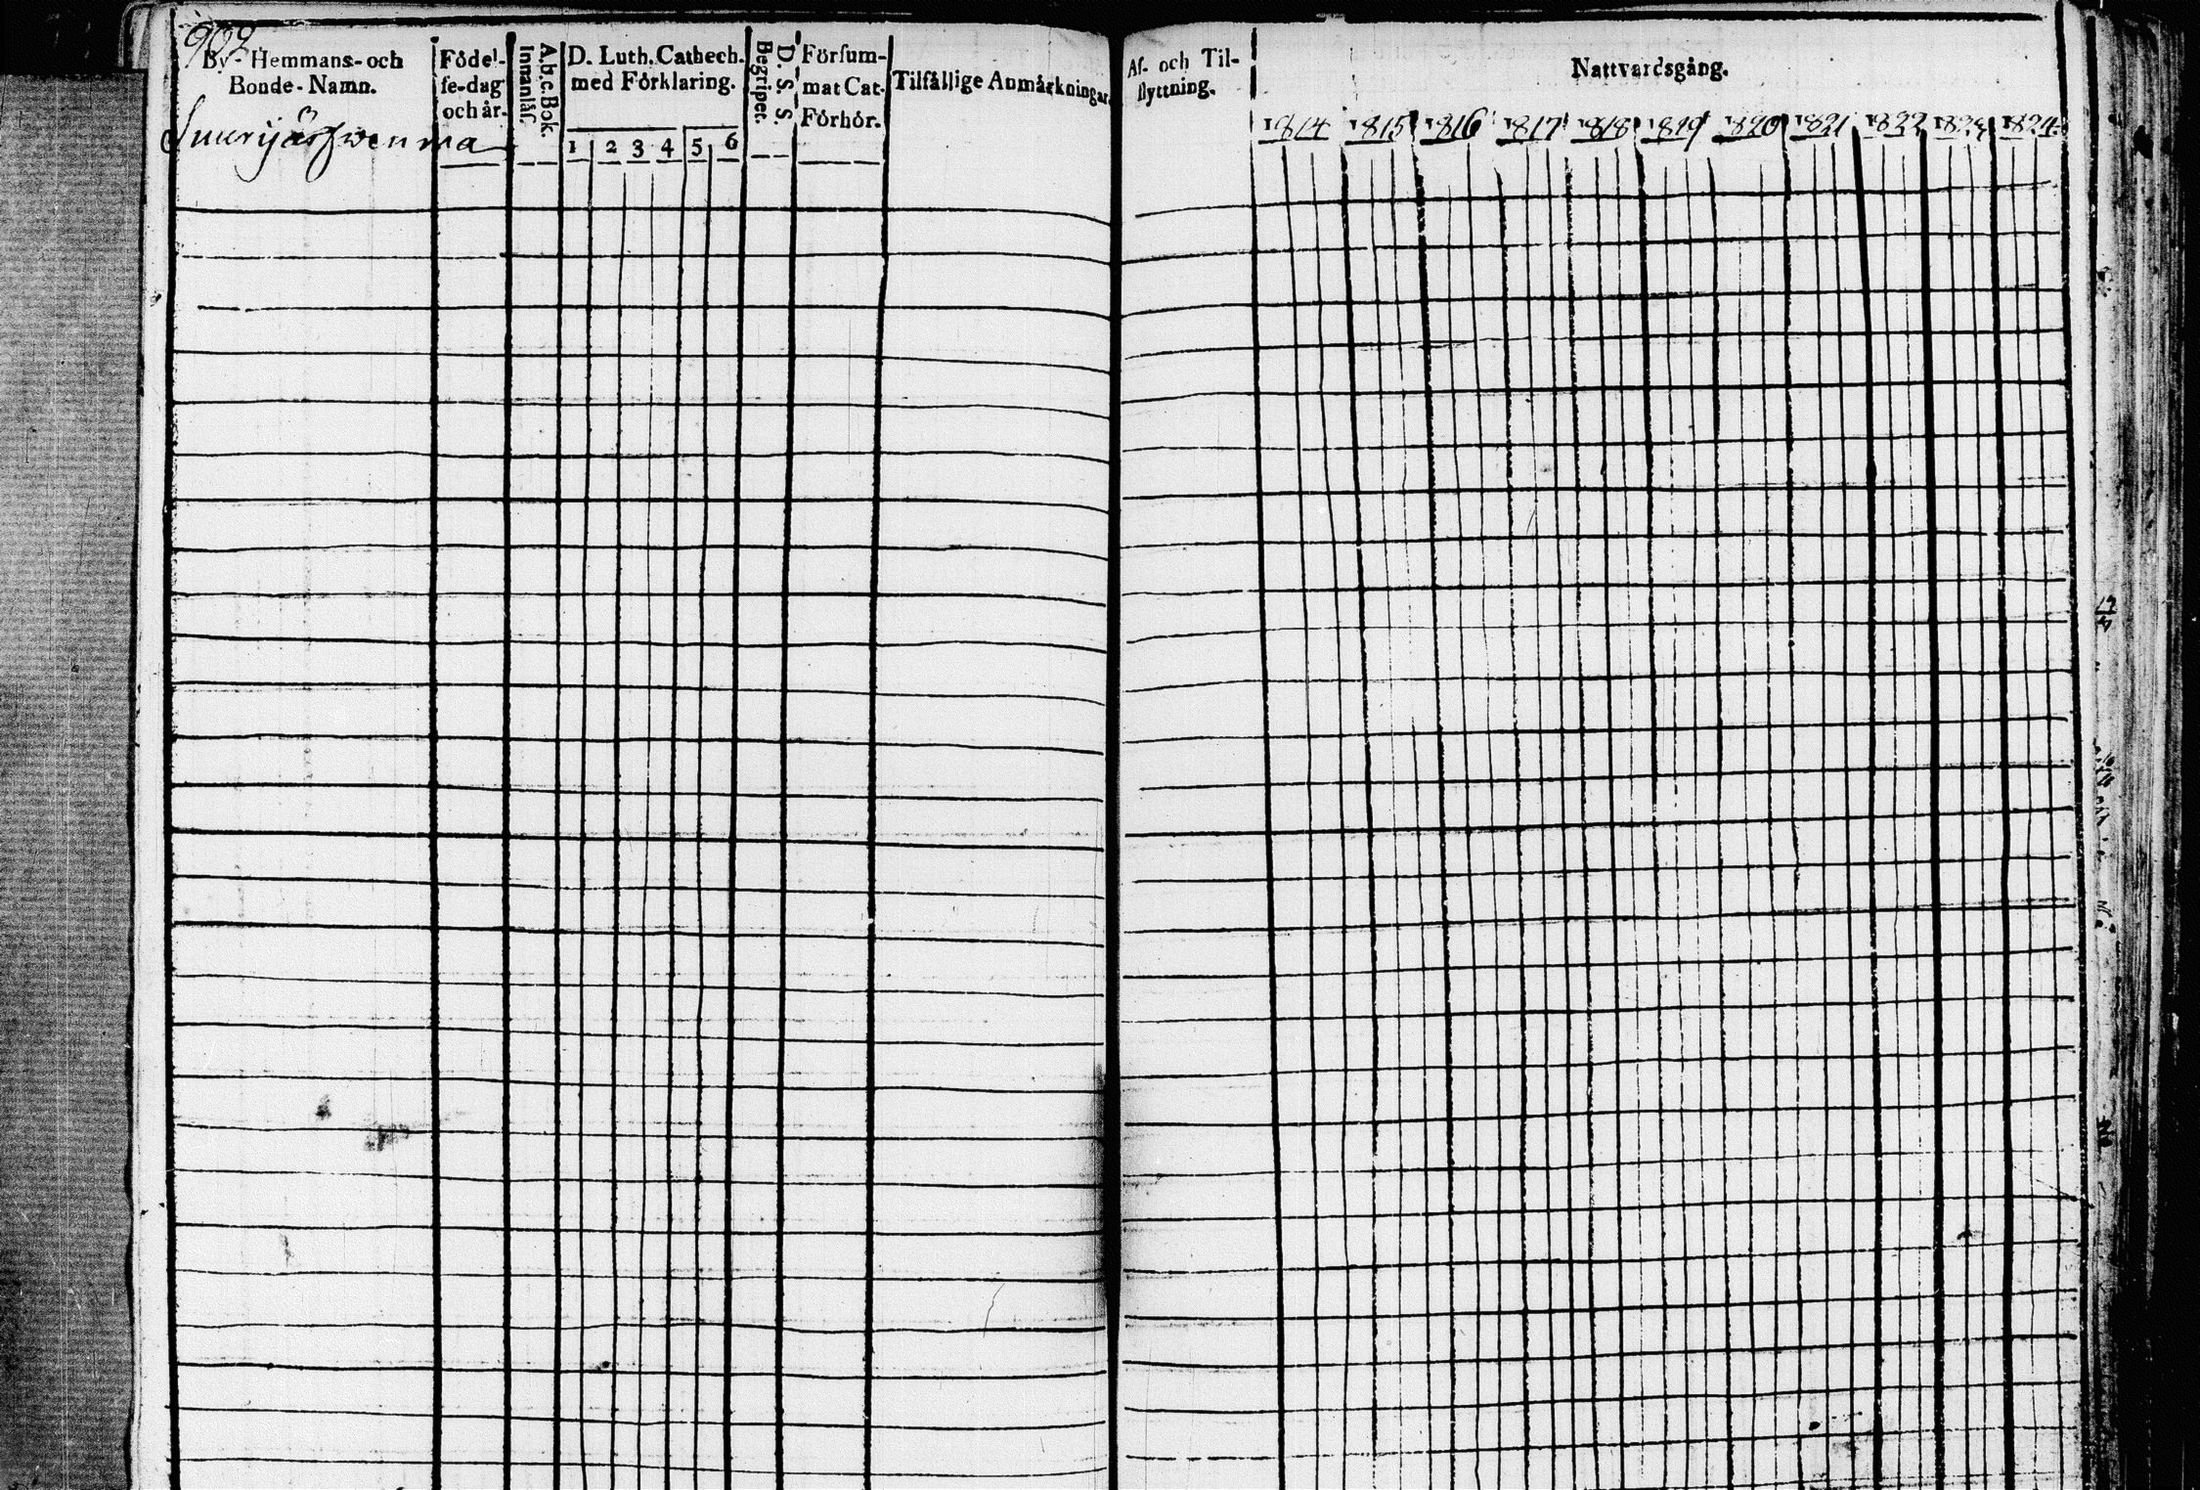 902.
By- Hemmans- och
Bonde-Namn.
Suurijärfwen maa
Födel-
se-dag
och år.
A.b.c.Bok.
Innanläs.
D. Luth. Cathech.
med Förklaring.
1 2 3 4 5 6
D. S. S.
Begripet.
Försum-
mat Cat.
Förhör.
Tilfällige Anmärkningar.
Af- och Til-
flyttning.
Nattvardsgång.
1814 1815 1816 1817 1818 1819 1820 1821 1822 1823 1824.